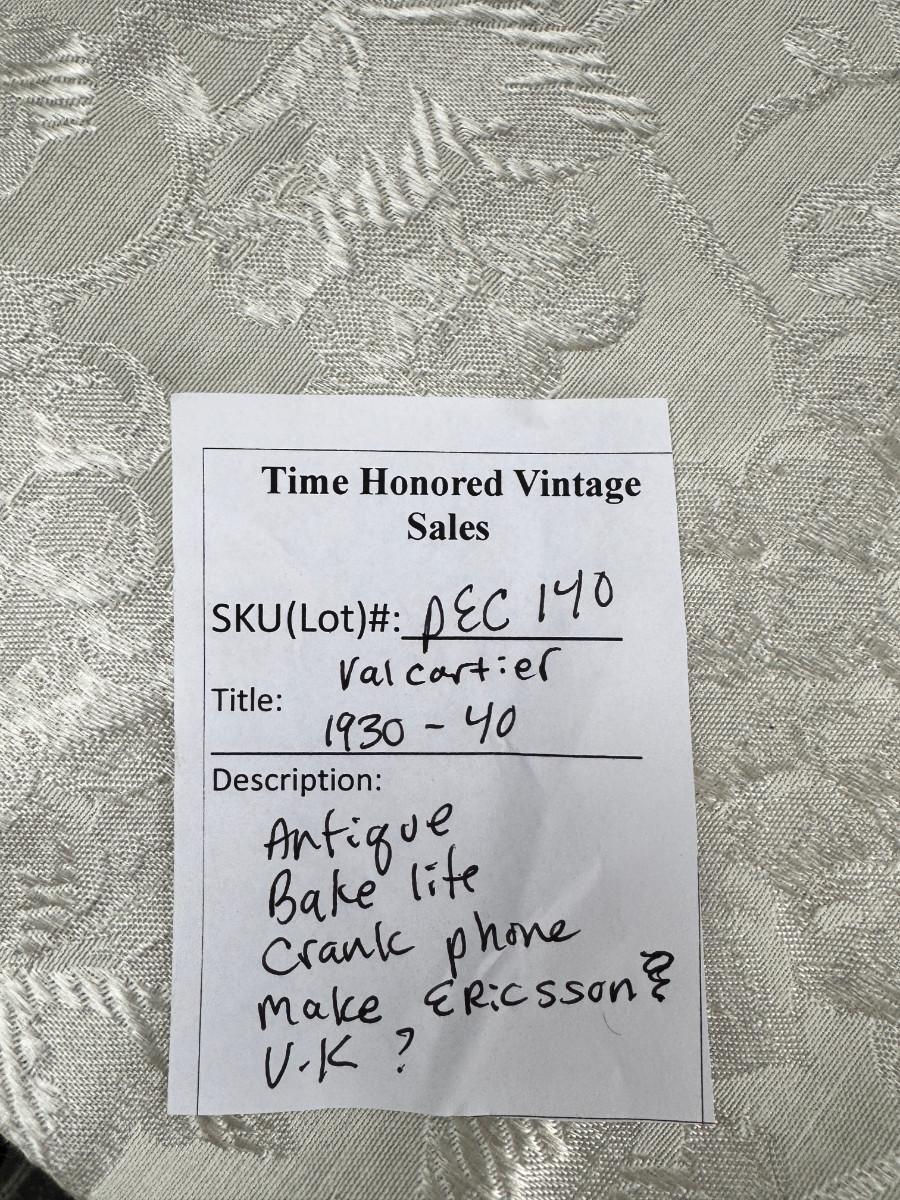 Time Honored Vintage
Sales
SKU(Lot)#: DEC 140
Valcartier
Title:
1930 - 40
Description:
Antique
Bake lite
Crank phone
Make ERicsson?
U.K ?